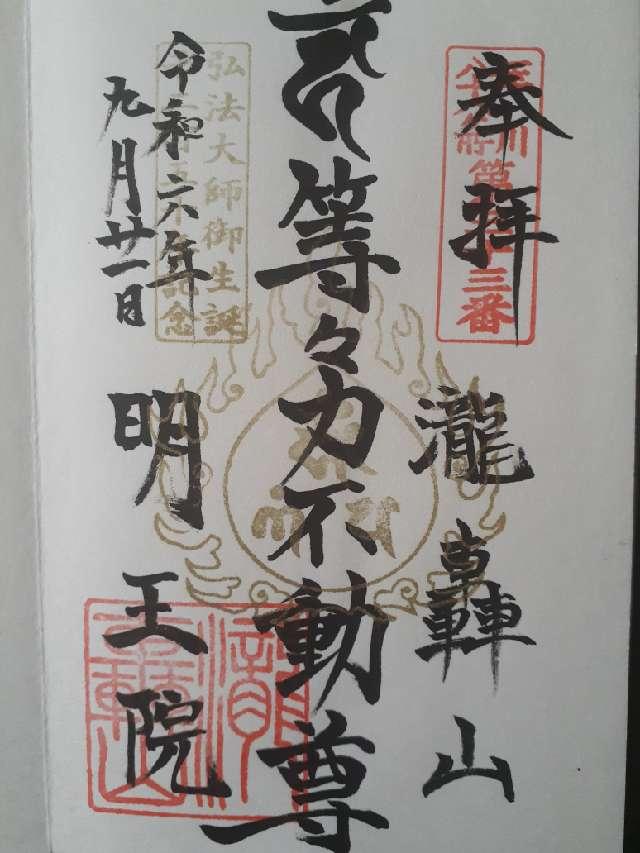 奉拝
瀧轟山
等々力不動尊
弘法大師御生誕
記念
令和六年
九月廿一日
明王院